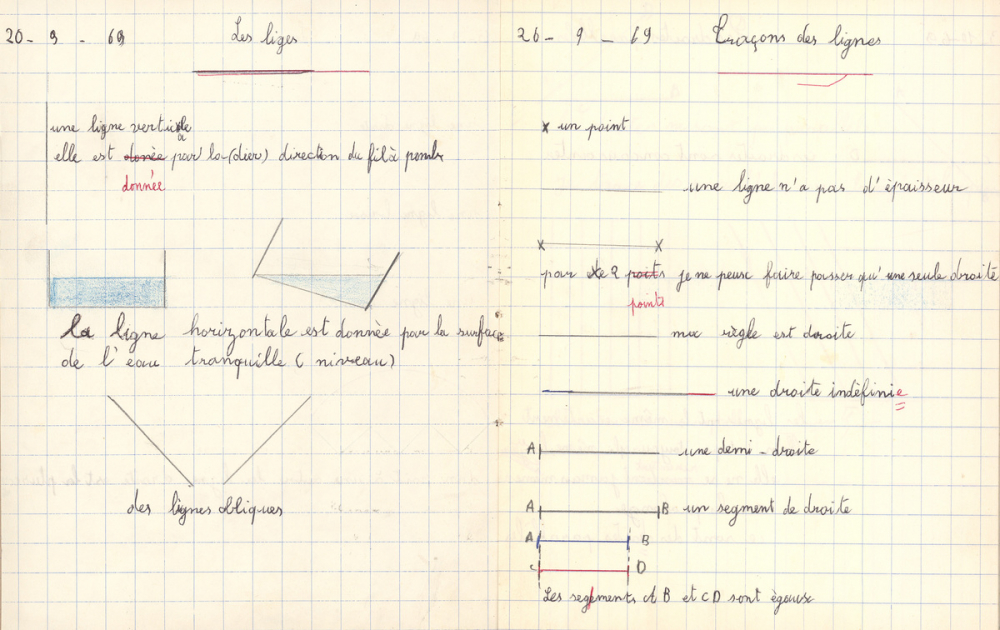 20 - 9 - 69 Les liges
une ligne verticale
elle est donèe par la (dier) direction du fil à pomb
donnée
la ligne horizontale est donnèe par la surface
de l'eau tranquille ( niveau )
des lignes obliques
26 - 9 - 69 Traçons des lignes
x un point
une ligne n'a pas d'èpaisseur
x x
par 2 poits je ne peux faire passer qu'une seule droite
points
ma règle est droite
une droite indèfinie
A une demi-droite
A B un segment de droite
A B
C D
Les segments A B et C D sont ègaux